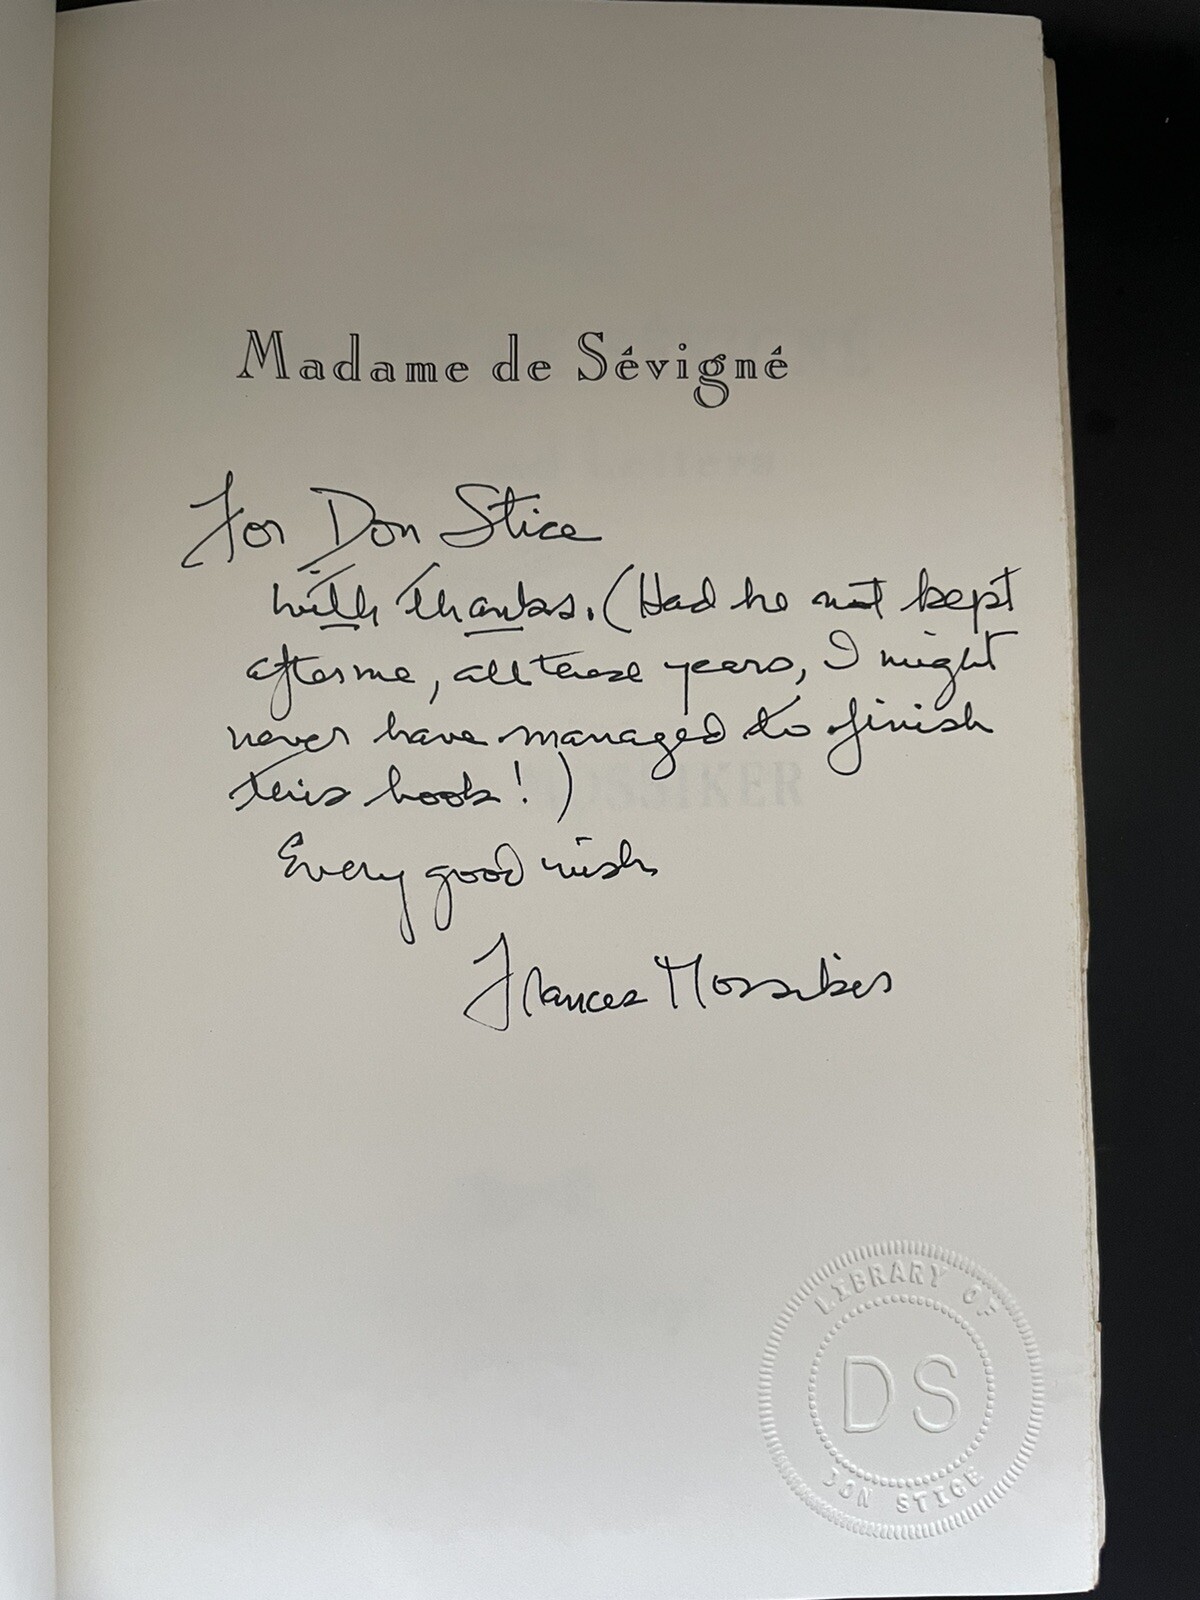 Madame de Sévigné
For Don Stice
with thanks. (Had he not kept
after me, all these years, I might
never have managed to finish
this book!)
Every good wish
Frances Mossiker
MOSSIKER
LIBRARY OF
DS
DON STICE